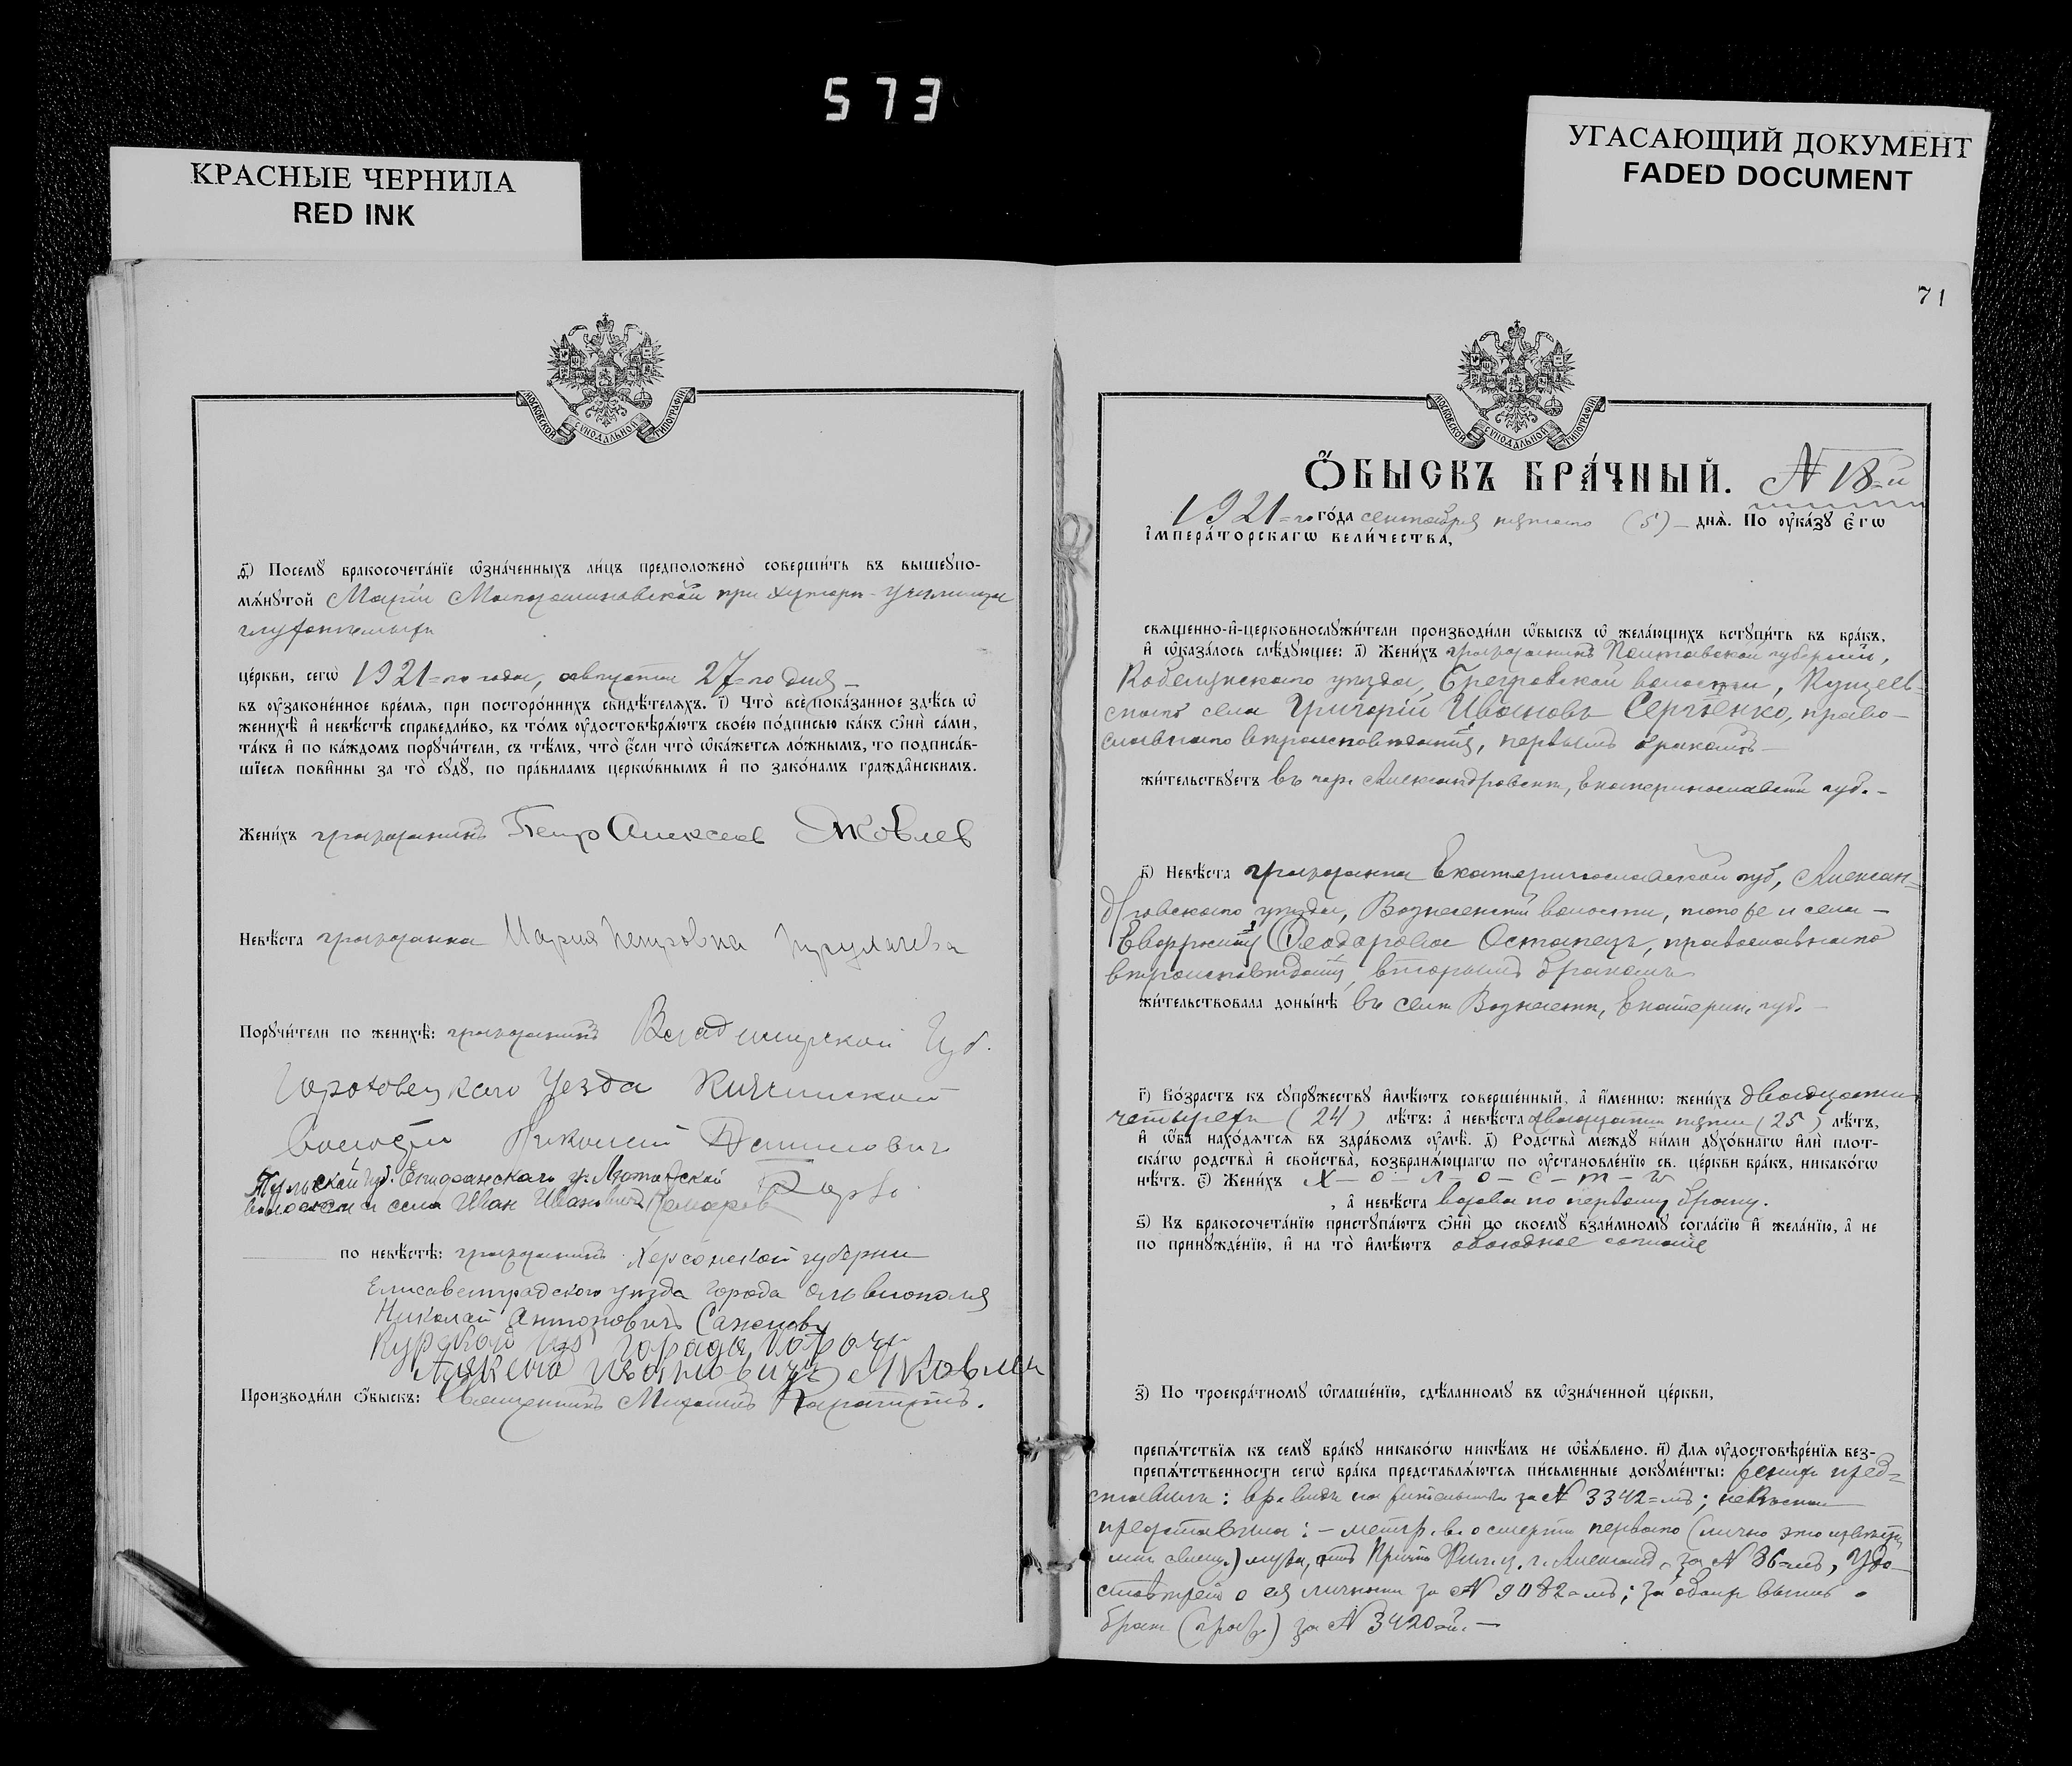 573
КРАСНЫЕ ЧЕРНИЛА
RED INK
УГАСАЮЩИЙ ДОКУМЕНТ
FADED DOCUMENT
МОСКОВСКОЙ СѴНОДАЛЬНОЙ ТИПОГРАФІИ
д҃і) Посемꙋ̀ бракосочета́нїе ѡ҆зна́ченныхъ ли́цъ предположено̀ соверши́ть въ вышеꙋпо-
мѧ́нꙋтой Маріи Магдалиновской при хуторѣ-училищѣ
глухонѣмыхъ
це́ркви, сегѡ̀ 1921=го года, августа 27=го дня –
въ ᲂу҆зако́ненное вре́мѧ, при посторо́ннихъ свидѣ́телѧхъ. і҃) Что̀ всѐ пока́занное здѣ́сь ѡ҆
женихѣ̀ и҆ невѣ́стѣ справедли́во, въ то́мъ ᲂу҆достовѣрѧ́ютъ свое́ю по́дписью ка́къ ѻ҆нѝ са́ми,
та́къ и҆ по ка́ждомъ порꙋчи́тели, съ тѣ́мъ, что̀ є҆́сли что̀ ѡ҆ка́жетсѧ ло́жнымъ, то подписа́в-
шїесѧ пови́нны за то̀ сꙋдꙋ̀, по пра́виламъ церкѡ́внымъ и҆ по зако́намъ гражда́нскимъ.
Жени́хъ гражданинъ Петр Алексеев Яковлев
Невѣ́ста гражданка Мария Петровна
Порꙋчи́тели по женихѣ̀: гражданинъ Владимирской Губ.
Гороховецкаго Уезда
волости Николай Данилович
Тульской губ. Епифанскаго у.
волости и села Иван Иванович Комаров
по невѣ́стѣ: гражданинъ Херсонской губернии
Елисаветградского уезда города Ольвиополя
Николай Антоновичъ
Курской губ города
Алексей Иванович Яковлев
Производи́ли ѻ҆́быскъ: Священникъ Михаилъ
71
Ѻ҆́БЫСКЪ БРА́ЧНЫЙ. № 18=й
1921=го го́да сентября пятаго (5) – днѧ̀. По ᲂу҆ка́зꙋ Є҆гѡ̀
І҆мпера́торскагѡ вели́чества,
свѧще́нно-и҆-церковнослꙋжи́тели производи́ли ѡ҆́быскъ ѡ҆ жела́ющихъ встꙋпи́ть въ бра́къ,
и҆ ѡ҆каза́лось слѣ́дꙋющее: а҃) Жени́хъ гражданинъ Полтавской губерніи,
Кобелякскаго уѣзда, волости,
села Григорій Ивановъ Сергѣенко, право-
славнаго вѣроисповѣданія, первымъ бракомъ –
жи́тельствꙋетъ въ гор. Александровскѣ, Екатеринославской губ. –
в҃) Невѣ́ста гражданка Екатеринославской губ, Алексан=
дровскаго уѣзда, Вознесенской волости, того же и села –
Евфросинія Ѳеодорова Остапецъ, православнаго
вѣроисповѣданія, вторымъ бракомъ
жи́тельствовала доны́нѣ въ селѣ Вознесенкѣ, Екатерин. губ. –
г҃) Во́зрастъ къ сꙋпрꙋ́жествꙋ и҆мѣ́ютъ соверше́нный, а҆ и҆́меннѡ: жени́хъ двадцати
четырехъ (24) лѣ́тъ: а҆ невѣ́ста двадцати пяти (25) лѣ́тъ,
и҆ ѻ҆́ба нахо́дѧтсѧ въ здра́вомъ ᲂу҆мѣ̀. д҃) Родства̀ междꙋ̀ ни́ми дꙋхо́внагѡ и҆лѝ плот-
ска́гѡ родства̀ и҆ сво́йства, возбранѧ́ющагѡ по ᲂу҆становле́нїю св. це́ркви бра́къ, никако́гѡ
нѣ́тъ. є҃) Жени́хъ Х – о – л – о – с – т – ъ
, а҆ невѣ́ста вдова по первому браку.
ѕ҃) Къ бракосочета́нїю пристꙋпа́ютъ ѻ҆нѝ по своемꙋ̀ взаи́мномꙋ согла́сїю и҆ жела́нїю, а҆ не
по принꙋжде́нїю, и҆ на то̀ и҆мѣ́ютъ обоюдное согласіе
з҃) По троекра́тномꙋ ѡ҆глаше́нїю, сдѣ́ланномꙋ въ ѡ҆зна́ченной це́ркви,
препѧ́тствїѧ къ семꙋ̀ бра́кꙋ никако́гѡ никѣ́мъ не ѡ҆б̾ѧ́влено. и҃) Длѧ ᲂу҆достовѣре́нїѧ без-
препѧ́тственности сегѡ̀ бра́ка представлѧ́ютсѧ пи́сьменные докꙋме́нты: женихъ пред=
ставилъ: вр. видъ на жительство за № 3342=мъ; невѣста
представила: – метр. в. о смерти перваго (лично
) мужа, за № 86=мъ, удо-
стовѣреніе о ея личности за № 9082=мъ;
бракѣ (гражд) за № 3420=й. –